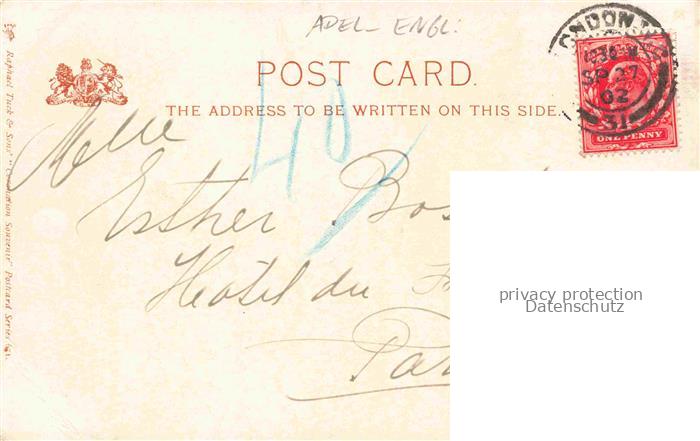 ADEL - ENGL.
POST CARD.
THE ADDRESS TO BE WRITTEN ON THIS SIDE.
LONDON
SP 27
02
31
ONE PENNY
40
Melle
Esther Bos
Hotel du
Par
Raphael Tuck & Sons' "Coronation Souvenir" Postcard Series
privacy protection
Datenschutz